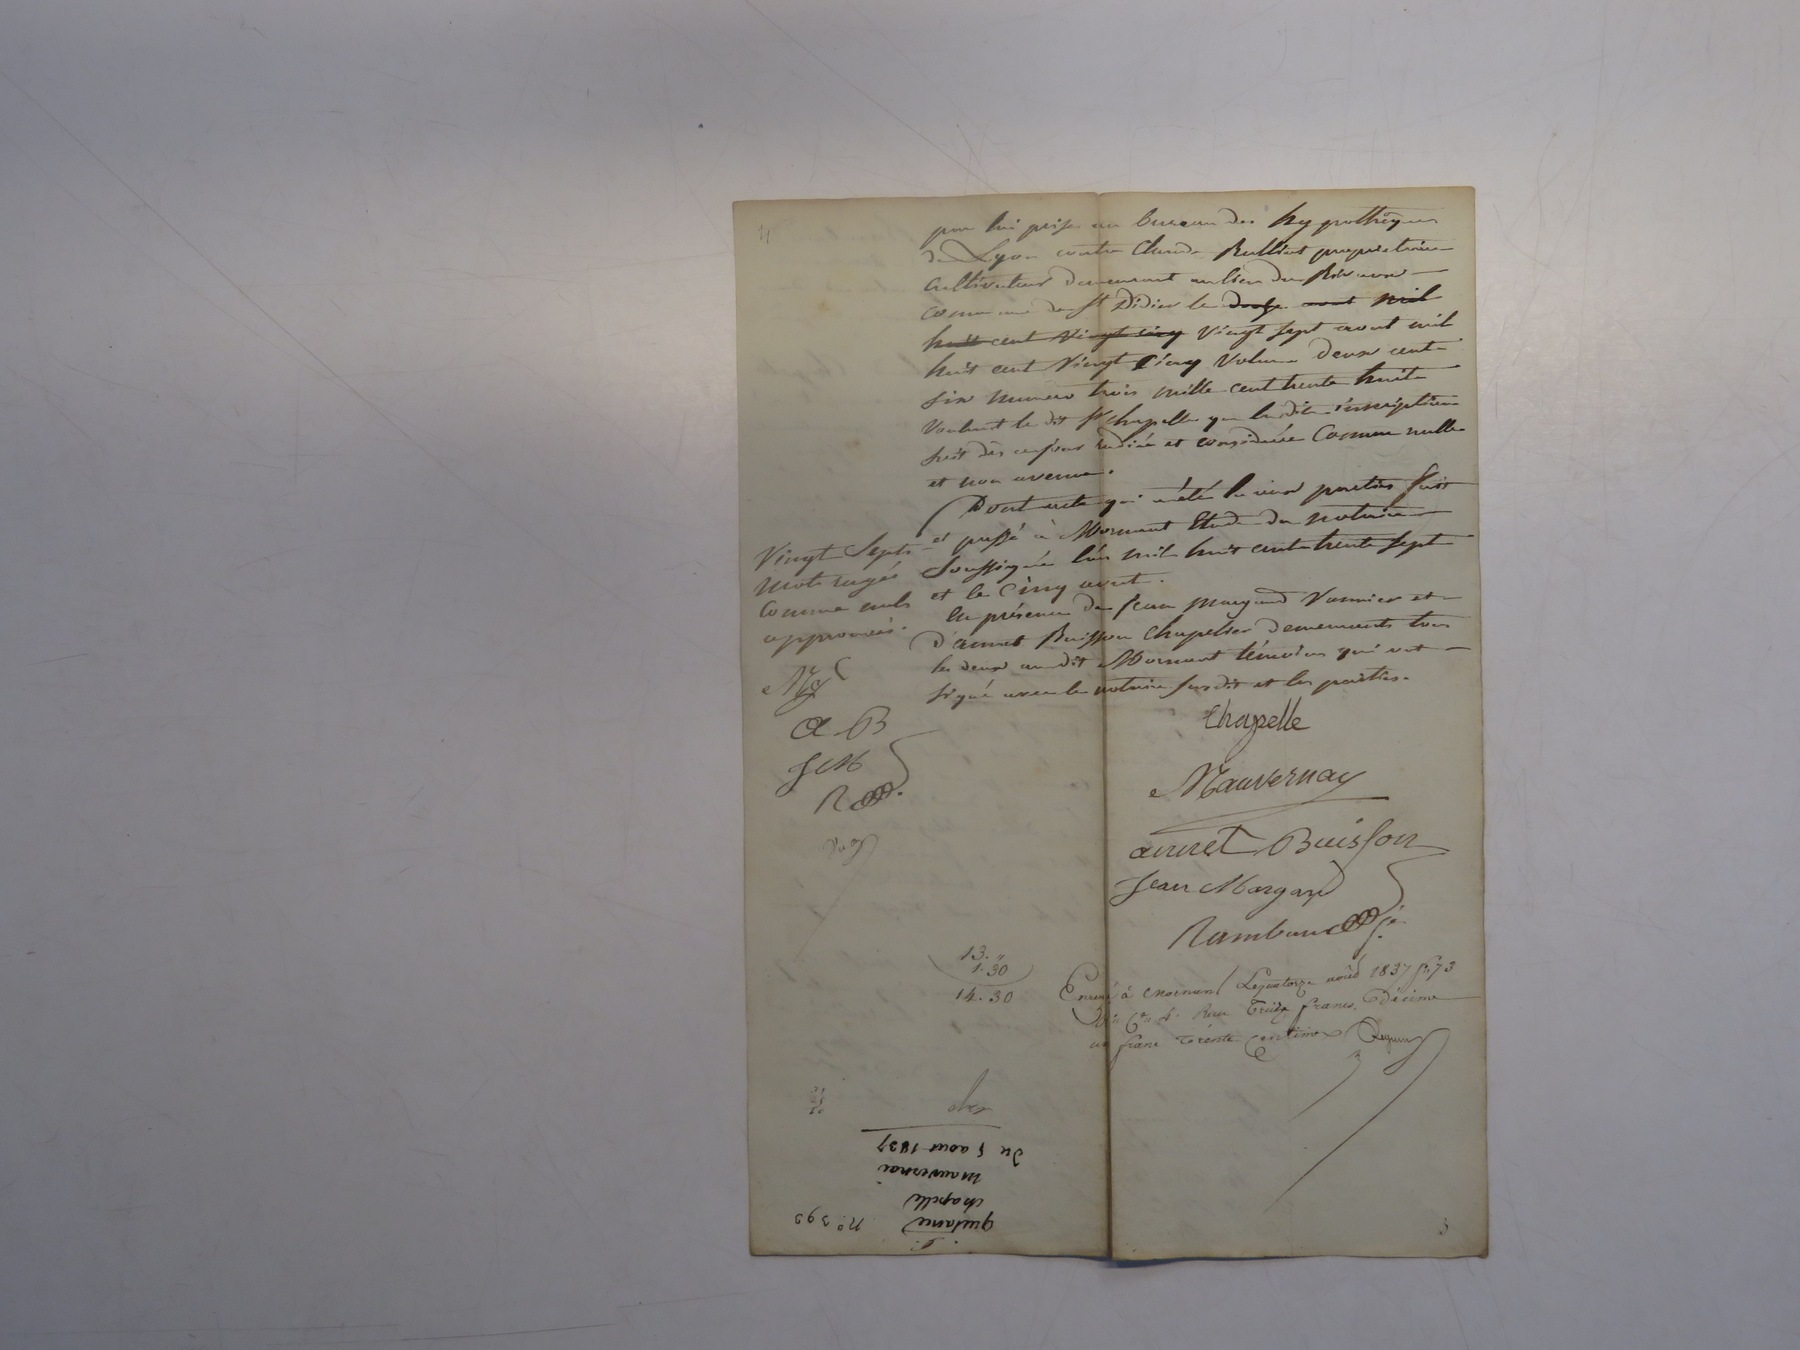 pour lui prise au bureau des hypothèques
de Lyon contre Claude Rullias propriétaire
cultivateur demeurant au lieu du
commune de St Didier le douze aout mil
huit cent vingt cinq vingt sept aout mil
huit cent vingt cinq volume deux cent
six numero trois mille cent trente huit
voulant le dit Sr chapelle que la dite inscription
soit dès ce jour radiée et considérée comme nulle
et non avenue.
Dont acte qui a été lu aux parties fait
et passé à Mornant Etude du notaire
soussigné l'an mil huit cent trente sept
et le cinq aout.
En présence de Jean margand Vannier et
d'annet Buisson chapelier demeurants tous
les deux au dit Mornant témoins qui ont
signé avec le notaire susdit et les parties.
Vingt Septs
mots rayés
comme nuls
approuvés.
M
a B
J M
R
Chapelle
Mauvernay
annet Buisson
Jean Margand
13. "
1.30
14.30
à Mornant Lequatorze août 1837 fo 73
Reçu Treize francs Décime
un franc trente Centimes
quitance
chapelle
mauvernai
du 5 aout 1837
no 393